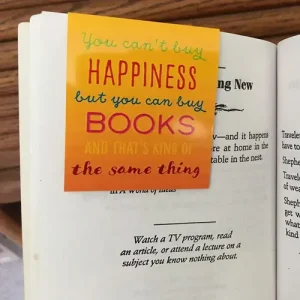 You can't buy
HAPPINESS
but you can buy
BOOKS
AND THAT'S KIND OF
the same thing
ing New
—and it happens
ere at home in the
table in the nest.
in A World of Ideas
Watch a TV program, read
an article, or attend a lecture on a
subject you know nothing about.
Travele
have to
Sheph
Travele
Sheph
get w
what
kind